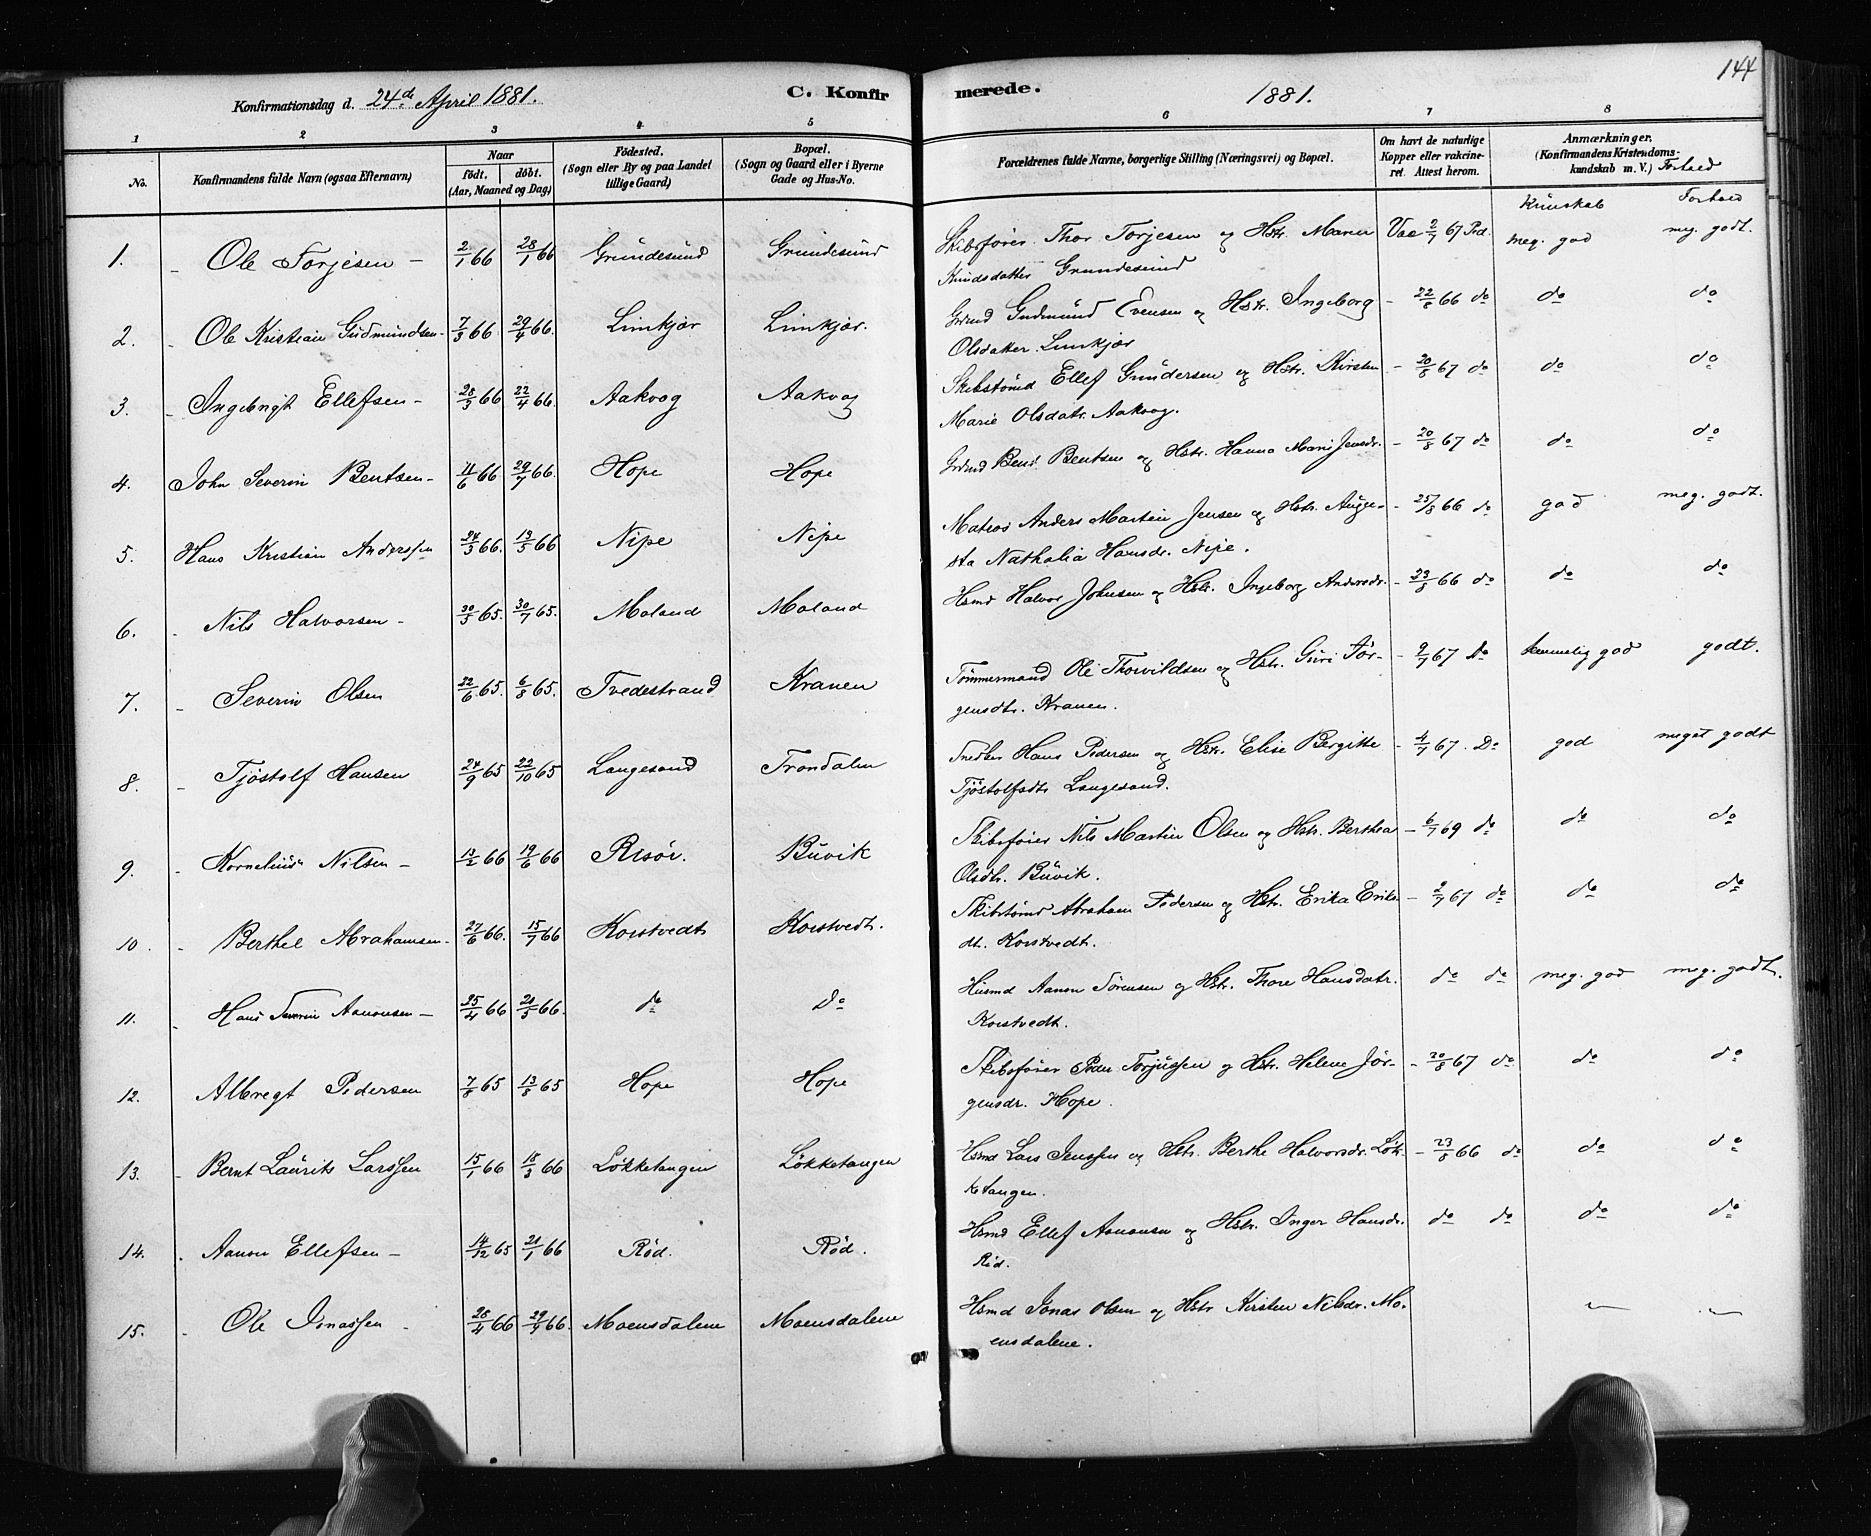 144
Konfirmationsdag d. 24de April 1881. C. Konfirmerede. 1881.
1 2 3 4 5 6 7 8
No. Konfirmandens fulde Navn (ogsaa Efternavn) Naar født. døbt. (Aar, Maaned og Dag) Fødested. (Sogn eller By og paa Landet tillige Gaard) Bopæl. (Sogn og Gaard eller i Byerne Gade og Hus-No. Forældrenes fulde Navne, borgerlige Stilling (Næringsvei) og Bopæl. Om havt de naturlige Kopper eller vakcineret. Attest herom. Anmærkninger. (Konfirmandens Kristendomskundskab m. V.) Forhold
Kunskab Forhold
1. Ole Torjesen 2/1 66 28/1 66 Grundesund Grundesund Skibsfører Thor Torjesen og Hstr. Maren Vac 2/7 67 Prd. meg. god meg. godt.
Knudsdatter Grundesund
2. Ole Kristian Gudmundsen 7/3 66 29/4 66. Limkjær Limkjær. Grdmd Gudmund Evensen og Hstr. Ingeborg 22/8 66 do do do
Olsdatter Limkjær
3. Ingebrigt Ellefsen 28/3 66 22/4 66. Aakvag Aakvag Skibstømd Ellef Gundersen og Hstr. Kirsten 20/8 67 do do do
Marie Olsdatr. Aakvag.
4. John Severin Bentsen 11/6 66 29/7 66. Hope Hope Grdmd Bend. Bentsen og Hstr. Hanna Marie Jensdr. 20/8 67 do do do
5. Hans Kristian Anderssen 24/3 66. 13/5 66 Nipe Nipe Matros Anders Martin Jensen og Hstr. Augu- 25/8 66 do god meg. godt.
sta Nathalia Hansdr. Nipe.
6. Nils Halvorsen 30/5 65. 30/7 65. Moland Moland Hsmd Halvor Johnsen og Hstr. Ingeborg Andersdr. 23/8 66 do do do
7. Severin Olsen 22/6 65. 6/8 65. Tvedestrand Kranen Tømmermand Ole Thorvildsen og Hstr. Guri Jør- 9/7 67 Do temmelig god godt.
gensdtr. Kranen.
8. Tjøstolf Hansen 24/9 65 22/10 65 Langesand Trondalen Snedker Hans Pedersen og Hstr. Elise Bergitte 4/7 67. Do god meget godt
Tjøstolfsdtr Langesand.
9. Kornelius Nilsen 13/2 66 19/6 66 Risør. Buvik Skibsfører Nils Martin Olsen og Hstr. Berthea 6/7 69 do do do
Olsdtr. Buvik.
10. Berthel Abrahamsen 27/6 66. 15/7 66 Korstvedt Korstvedt. Skibstømd Abraham Pedersen og Hstr. Erika Eriks 2/7 67 do do do
dt. Korstvedt.
11. Hans Severin Aanonsen 25/4 66 21/5 66. do Do Husmd Aanon Sørensen og Hstr. Thore Hansdatr. do do meg. god meg. godt.
Korstvedt.
12. Albregt Pedersen 7/8 65 13/8 65 Hope Hope Skibsfører Peder Torjussen og Hstr. Helene Jør- 20/8 67 do do do
gensdr. Hope.
13. Bernt Laurits Larssen 15/1 66 18/3 66 Løkketangen Løkketangen Hsmd Lars Jenssen og Hstr. Berthe Halvorsdr. Løk- 23/8 66 do do do
ketangen.
14. Aanon Ellefsen 14/12 65 21/1 66 Rød. Rød. Hsmd Ellef Aanonsen og Hstr. Inger Hansdr. do do do do
Rød.
15. Ole Jonassen 28/4 66 29/4 66. Moensdalene Moensdalene Hsmd Jonas Olsen og Hstr Kirsten Nilsdr. Mo-
ensdalene.